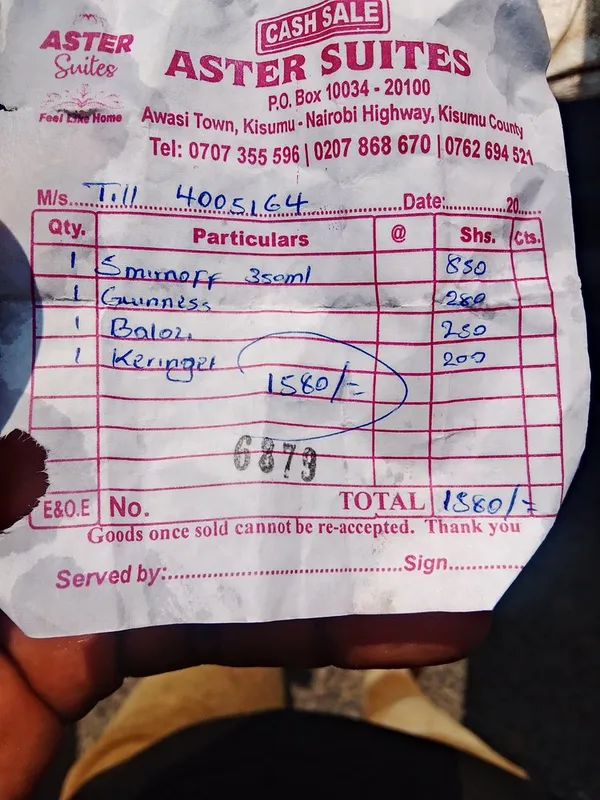 CASH SALE
ASTER Suites
Feel Like Home
ASTER SUITES
P.O. Box 10034 - 20100
Awasi Town, Kisumu - Nairobi Highway, Kisumu County
Tel: 0707 355 596 | 0207 868 670 | 0762 694 521
M/s....Till 4005164....Date:............20.....
Qty. Particulars @ Shs. Cts.
1 Smirnoff 350ml 850
1 Guinness 280
1 Balozi 250
1 Keringet 200
1580/=
6879
E&O.E No. TOTAL 1580/=
Goods once sold cannot be re-accepted. Thank you
Served by:..............................Sign............